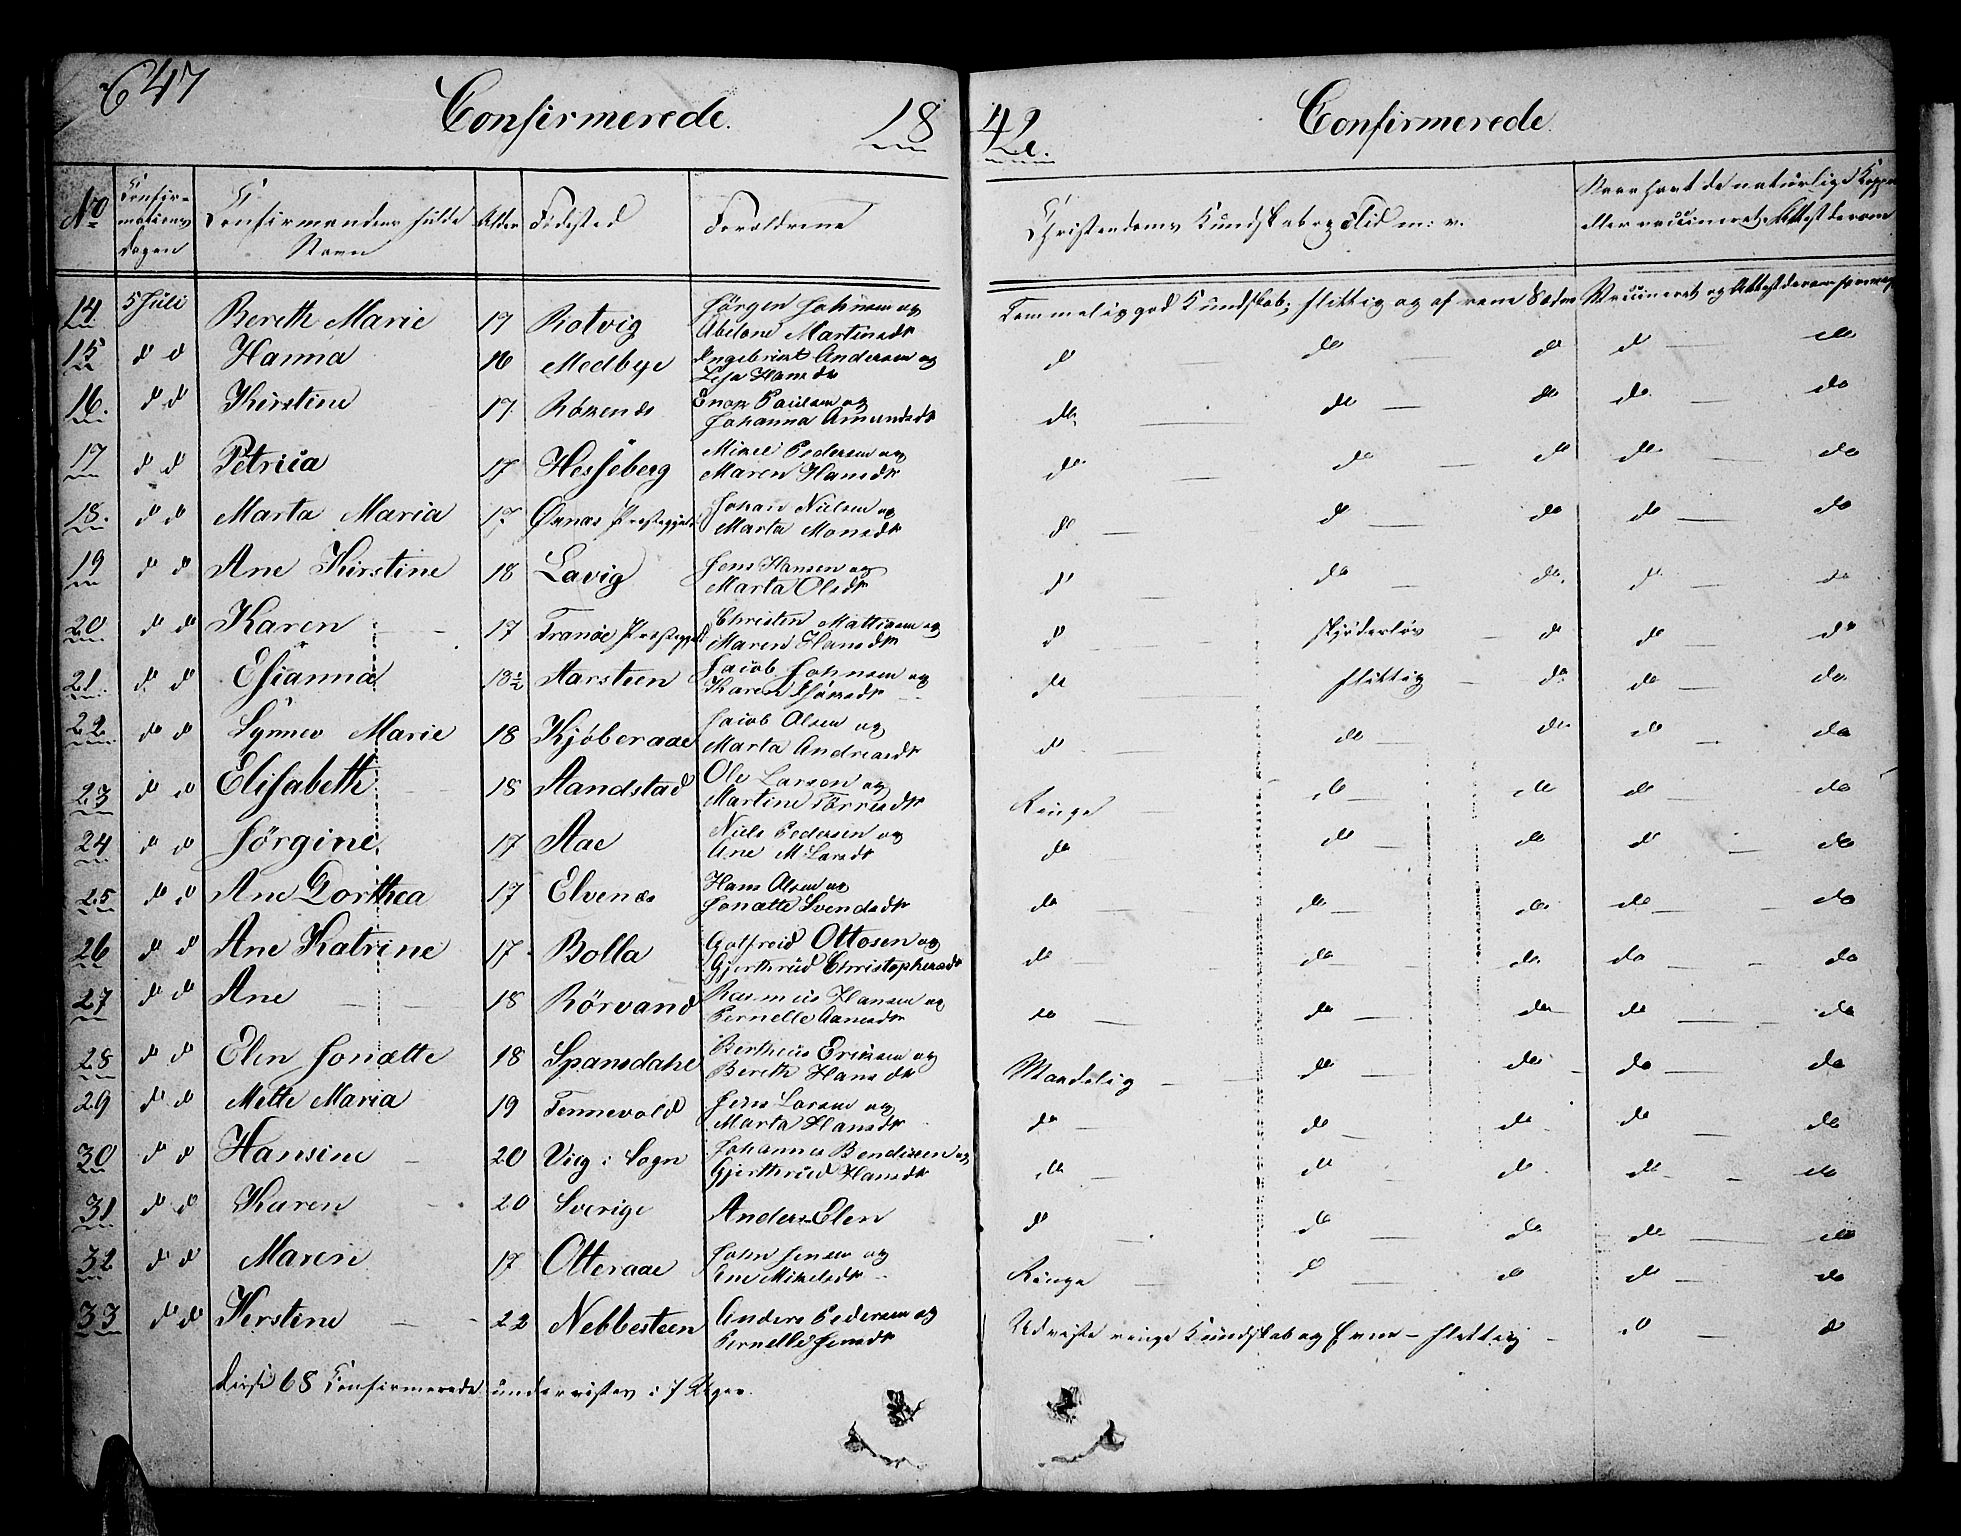 647
Confirmerede. 18 42. Confirmerede.
No Confirmations dagen Confirmandens fulde Navn Alder Fødested Forældrene Christendoms Kundskab og Flid m: v. Naar havt de naturlige Kopper eller vaccineret, Attest derom
14. 5 Juli Bereth Marie 17 Rotvig Jørgen Johnsen og Abelone Martinsdt Temmelig god Kundskab, flittig og af rene Sæder Vaccineret og Attest derom
15 do do Hanna 16 Medbye Ingebrigt Andersen og Lisa Hansdt do do do do — do
16. do do Kirstine 17. Røkenæs Enok Paulsen og Johanna Amundsdt do. do — do do — do
17 do do Petrica 17 Hesseberg Mikel Pedersen og Maren Hansdt do do — do do — do
18. do do Marta Maria 17 Øxnæs Prestegjeld Johan Nielsen og Marta Monsdt do — do — do do — do
19 do do Ane Kirstine 18 Lavig Jens Hansen og Marta Olsdt do do — do. do — do
20 do do Karen 17 Tranøe Prestegjeld Christen Mattisen og Maren Hansdt do — skjødesløs — do do — do
21. do do Esianna 18½ Aarsteen Jacob Johnsen og Karen do — flittig — do do — do
22. do do Synnev Marie 18 Kjøberaae Jacob Olsen og Marta Andreasdt do — do — do do — do
23 do do Elisabeth 18 Aandstad Ole Larsen og Martine Torresdt Ringe — do — do do — do
24 do do Jørgine 17 Aae Niels Pedersen og Ane M Larsdt do — do do do — do
25 do do Ane Dorthea 17 Elvenæs Hans Olsen og Jonette Svendsdt do — do — do do — do
26 do do Ane Katrine 17 Bolla Gotfreid Ottosen og Gjerthrud Christophersdt do — do — do do — do
27 do do Ane 18 Rørvand Rasmus Hansen og Pernelle Aanesdt do — do — do do — do
28 do do Elen Jonette 18 Spansdahl Bertheus Eriksen og Bereth Hansdt Maadelig — do — do do — do
29 do do Mette Maria 19 Tennevold Jens Larsen og Marta Hansdt do — do — do do do
30 do do Hansine 20 Vig i Sogn Johannes Bendixen og Gjerthrud Hansdt do — do do do — do
31 do do Karen 20 Sverige Anders Elen do — do — do do — do
32 do do Maren 17 Otteraae John Jensen og Ane Mikelsdt Ringe — do — do do — do
33 do do Kerstine 22 Nebbesteen Anders Pedersen og Pernelle Jensdt Udviste ringe Kundskab og Evne — flittig — do — do
Disse 68 Confirmerede undervistes i 7 Uger.